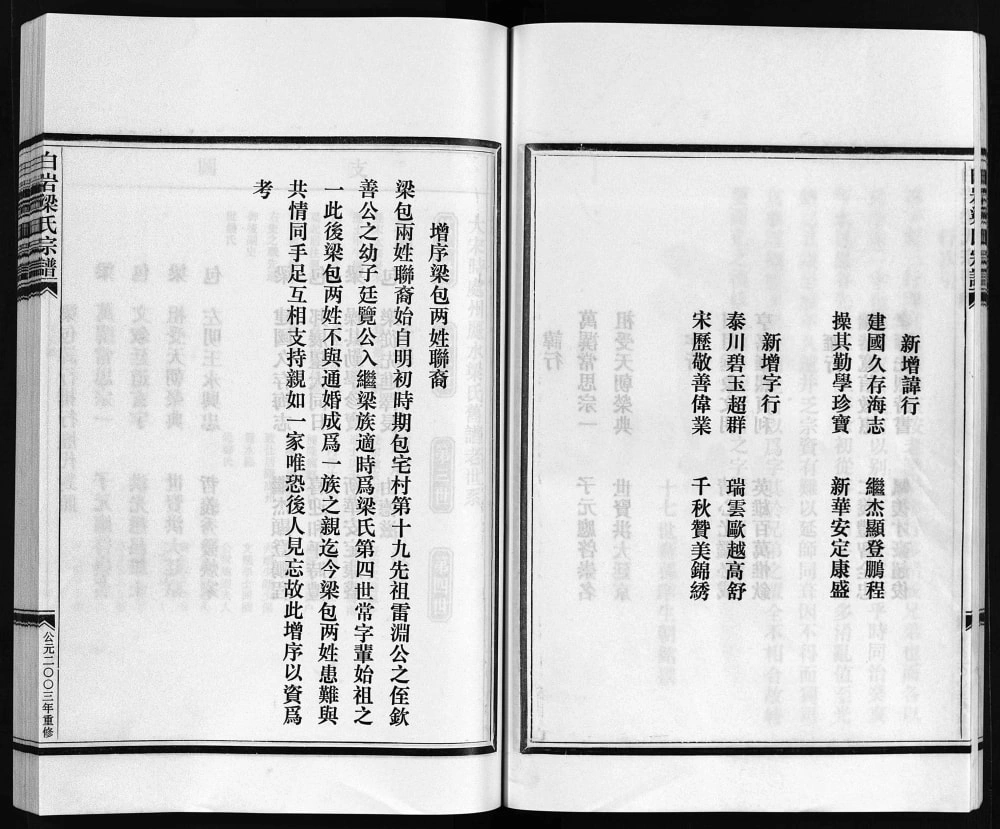 新增諱行
建國久存海志　繼杰顯登鵬程
操其勤學珍寶　新華安定康盛
新增字行
泰川碧玉超群　瑞雲歐越高舒
宋歷敬善偉業　千秋贊美錦綉
增序梁包两姓聯裔
梁包兩姓聯裔始自明初時期包宅村第十九先祖雷淵公之侄欽
善公之幼子廷覽公入繼梁族適時爲梁氏第四世常字輩始祖之
一此後梁包两姓不與通婚成爲一族之親迄今梁包两姓患難與
共情同手足互相支持親如一家唯恐後人見忘故此增序以資爲
考
白岩梁氏宗譜
公元二〇〇三年重修